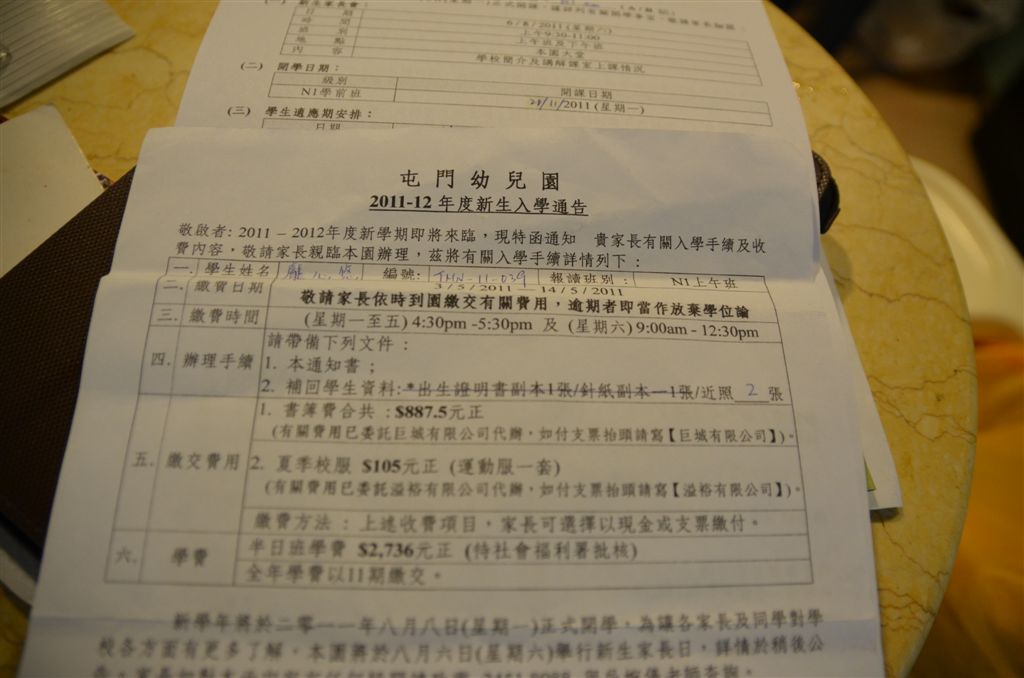 (一) 新生家長會：
日期
時間 6/8/2011 (星期六)
上午9:30-11:00
級別 上午班及下午班
地點 本園大堂
內容 學校簡介及講解課室上課情況
(二) 開學日期：
級別 開課日期
N1學前班 /2011 (星期一)
(三) 學生適應期安排：
日期
屯門幼兒園
2011-12 年度新生入學通告
敬啟者: 2011 – 2012年度新學期即將來臨，現特函通知 貴家長有關入學手續及收
費內容，敬請家長親臨本園辦理，茲將有關入學手續詳情列下：
一. 學生姓名 編號: TMN-11-039 報讀班別： N1上午班
二. 繳費日期 3/5/2011 – 14/5/2011
敬請家長依時到園繳交有關費用，逾期者即當作放棄學位論
三. 繳費時間 (星期一至五) 4:30pm -5:30pm 及 (星期六) 9:00am - 12:30pm
四. 辦理手續 請帶備下列文件：
1. 本通知書；
2. 補回學生資料:*出生證明書副本1張/針紙副本一1張/近照 2 張
五. 繳交費用 1. 書簿費合共：$887.5元正
(有關費用已委託巨城有限公司代辦，如付支票抬頭請寫【巨城有限公司】)。
2. 夏季校服 $105元正 (運動服一套)
(有關費用已委託溢裕有限公司代辦，如付支票抬頭請寫【溢裕有限公司】)。
繳費方法：上述收費項目，家長可選擇以現金或支票繳付。
六. 學費 半日班學費 $2,736元正 (待社會福利署批核)
全年學費以11期繳交。
新學年將於二零一一年八月八日(星期一)正式開學，為讓各家長及同學對學
校各方面有更多了解，本園將於八月六日(星期六)舉行新生家長日，詳情於稍後公